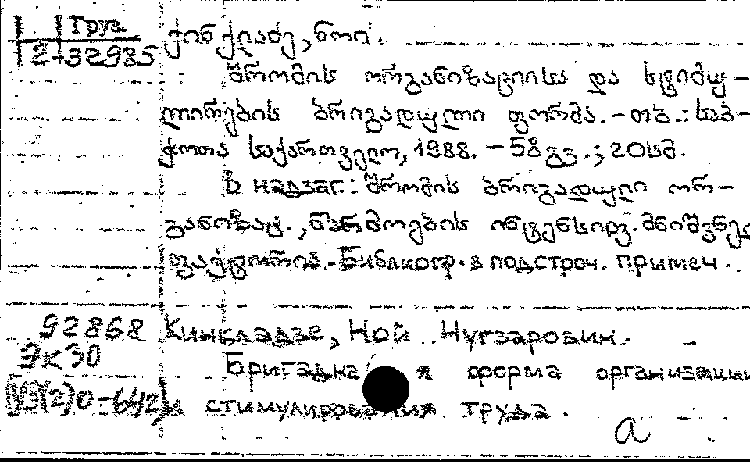 Груз
2-32985
კინკლაძე, ნოი.
შრომის ორგანიზაციისა და სტიმუ-
ლირების ბრიგადული ფორმა. - თბ.: საბ-
ჭოთა საქართველო, 1988. - 58 გვ.; 20 სმ.
В надзаг.: შრომის ბრიგადული ორ-
განიზაც., წარმოების ინტენსივ. მნიშვნელ
ფაქტორია. - Библиогр. в подстроч. примеч.
92868 Кинкладзе, Ной Нугзарович.
Эк30
Бригадна я форма организации
УЭ(2)0-642,я стимулирования труда.
а